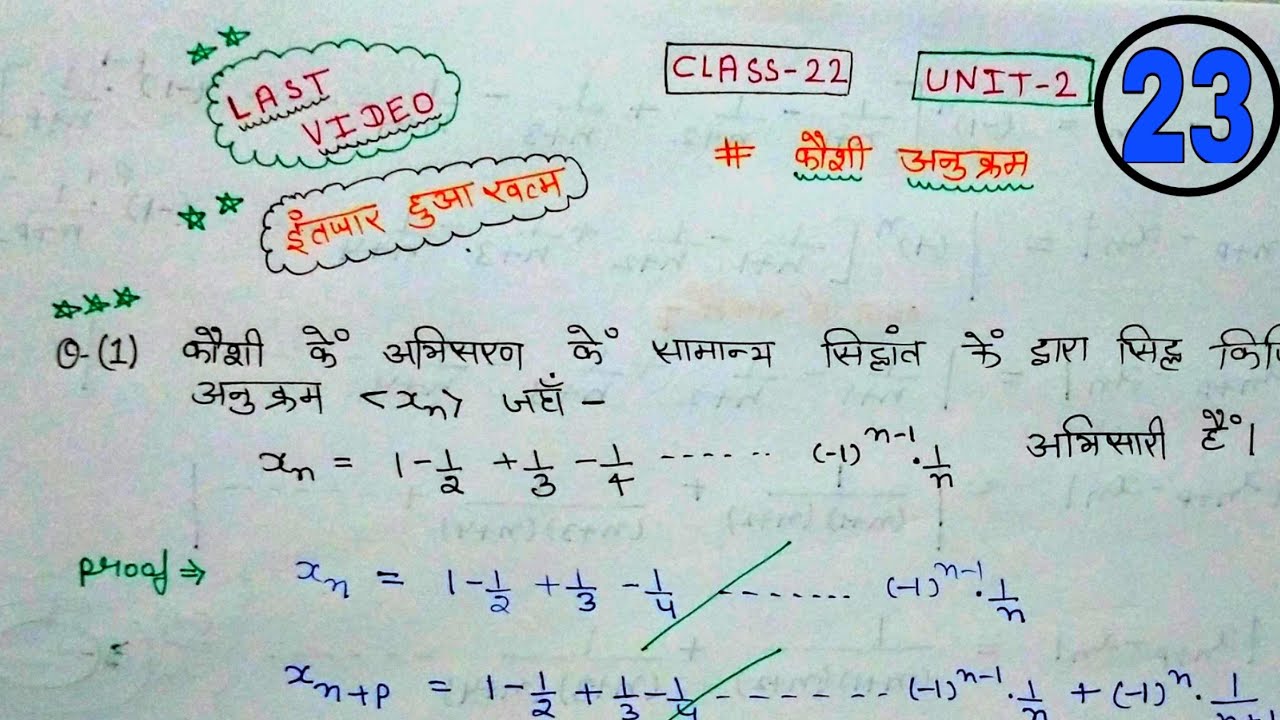 LAST
VIDEO
CLASS-22
UNIT-2
23
# कौशी अनुक्रम
इंतजार हुआ खत्म
Q-(1) कौशी कें अभिसरण कें सामान्य सिद्धांत कें द्वारा सिद्ध
अनुक्रम <xₙ> जहाँ -
xₙ = 1 - 1/2 + 1/3 - 1/4 ------ (-1)ⁿ⁻¹ · 1/n अभिसारी हैं।
proof ⇒ xₙ = 1 - 1/2 + 1/3 - 1/4 ------- (-1)ⁿ⁻¹ · 1/n
xₙ₊ₚ = 1 - 1/2 + 1/3 - 1/4 ------- (-1)ⁿ⁻¹ · 1/n + (-1)ⁿ ·